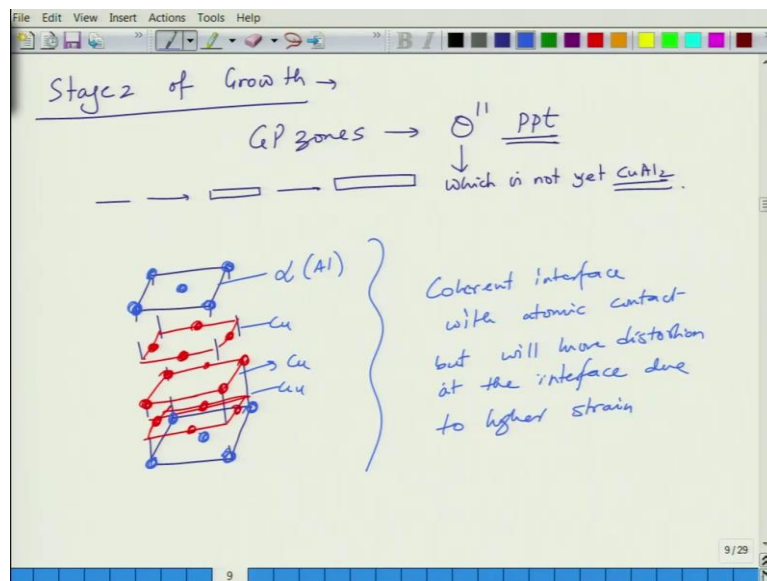 File Edit View Insert Actions Tools Help
B I
Stage 2 of Growth →
GP zones → θ'' ppt
which is not yet CuAl2.
α (Al)
Cu
Cu
Cu
Coherent interface
with atomic contact
but will have distortion
at the interface due
to higher strain
9/29
9